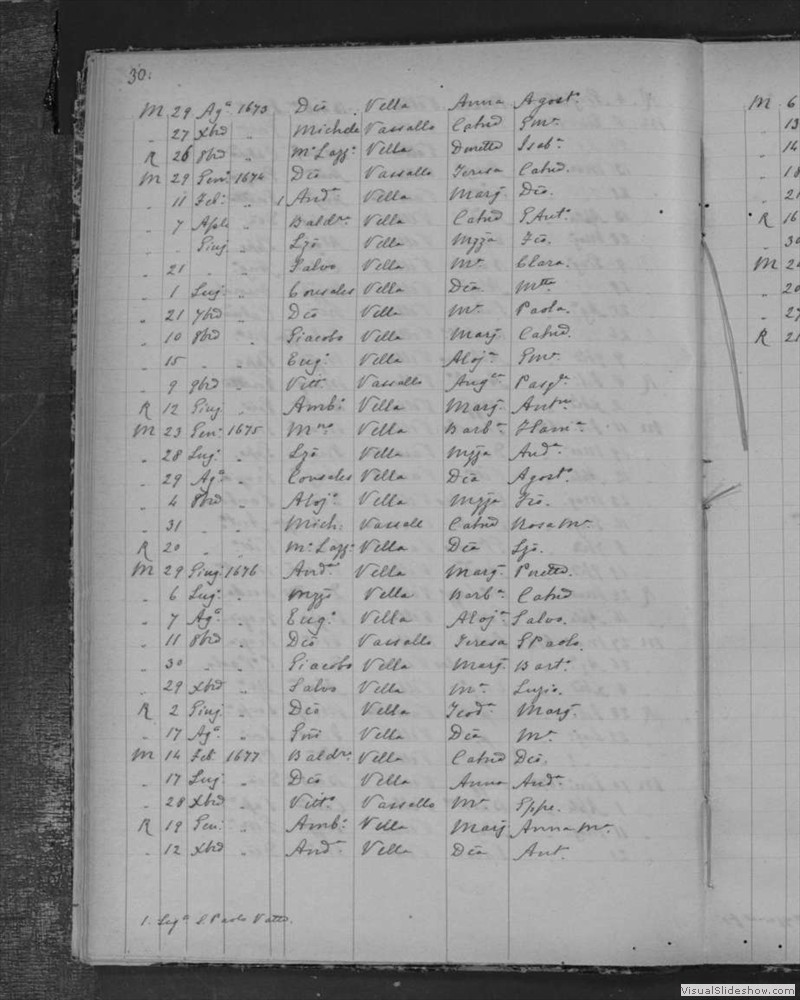 30.
M 29 Agᵃ 1673 Dẽo Vella Anna Agostᵃ
„ 27 Xbrẽ „ Michele Vassallo Catnᵈ Gmʳ
R 26 8brẽ „ Mᵒ Lazzᵒ Vella Doretta Isabᵃ
M 29 Genᵒ 1674 Dẽo Vassallo Teresa Catnᵈ
„ 11 Feb: „ 1 Andᵃ Vella Marg̃ Dẽo.
„ 7 Aple „ Baldʳᵉ Vella Catnᵈ
„ Giug „ Lg̃o Vella Mg̃ga
„ 21 „ Salvo Vella Mᵃ Clara.
„ 1 Lug. „ Consalvo Vella Dẽa Mᵗᵗᵃ
„ 21 7brẽ „ Dẽo Vella Mᵃ Paola.
„ 10 8brẽ „ Giacobo Vella Marg̃ Catnᵈ
„ 15 „ „ Eugᵒ Vella Alojᵃ Gmʳ
„ 9 9brẽ „ Vitt. Vassallo Augᵗᵃ Pasqˡᵉ
R 12 Giug „ Ambᵒ Vella Marg̃ Antⁿᵒ
M 23 Genᵒ 1675 Mʳᵒ Vella Barbᵃ Flamᵃ
„ 28 Lug. „ Lg̃o Vella Mg̃ga Andᵃ
„ 29 Agᵃ „ Consalvo Vella Dẽa Agostᵒ
„ 4 8brẽ „ Alojᵒ Vella Mg̃ga
„ 31 „ „ Mich. Vassall Catnᵈ Rosa Mᵃ
R 20 „ „ Mᵒ Lazzᵒ Vella Dẽa Lg̃o.
M 29 Giug 1676 Andᵃ Vella Marg̃
„ 6 Lug. „ Mg̃go Vella Barbᵃ Catnᵈ
„ 7 Agᵃ „ Eugᵒ Vella Alojᵃ Salvo.
„ 11 8brẽ „ Dẽo Vassallo Teresa G Paolo.
„ 30 „ „ Giacobo Vella Marg̃ Bartᵒ
„ 29 Xbrẽ „ Salvo Vella Mᵃ
R 2 Giug „ Dẽo Vella Teodᵃ Marg̃
„ 17 Agᵃ „ Vella Dẽa Mᵃ
M 14 Feb 1677 Baldʳᵉ Vella Catnᵈ Dẽo.
„ 17 Lug. „ Dẽo Vella Anna Andᵃ
„ 28 Xbrẽ „ Vittᵒ Vassallo Mᵃ Gppe.
R 19 Gen. „ Ambᵒ Vella Marg̃ Anna Mᵃ
„ 12 Xbrẽ „ Andᵃ Vella Dẽa Ant.
1. S. Paolo
M 6
13
14
18
21
R 16
30
M 20
20
27
R 21
VisualSlideshow.com